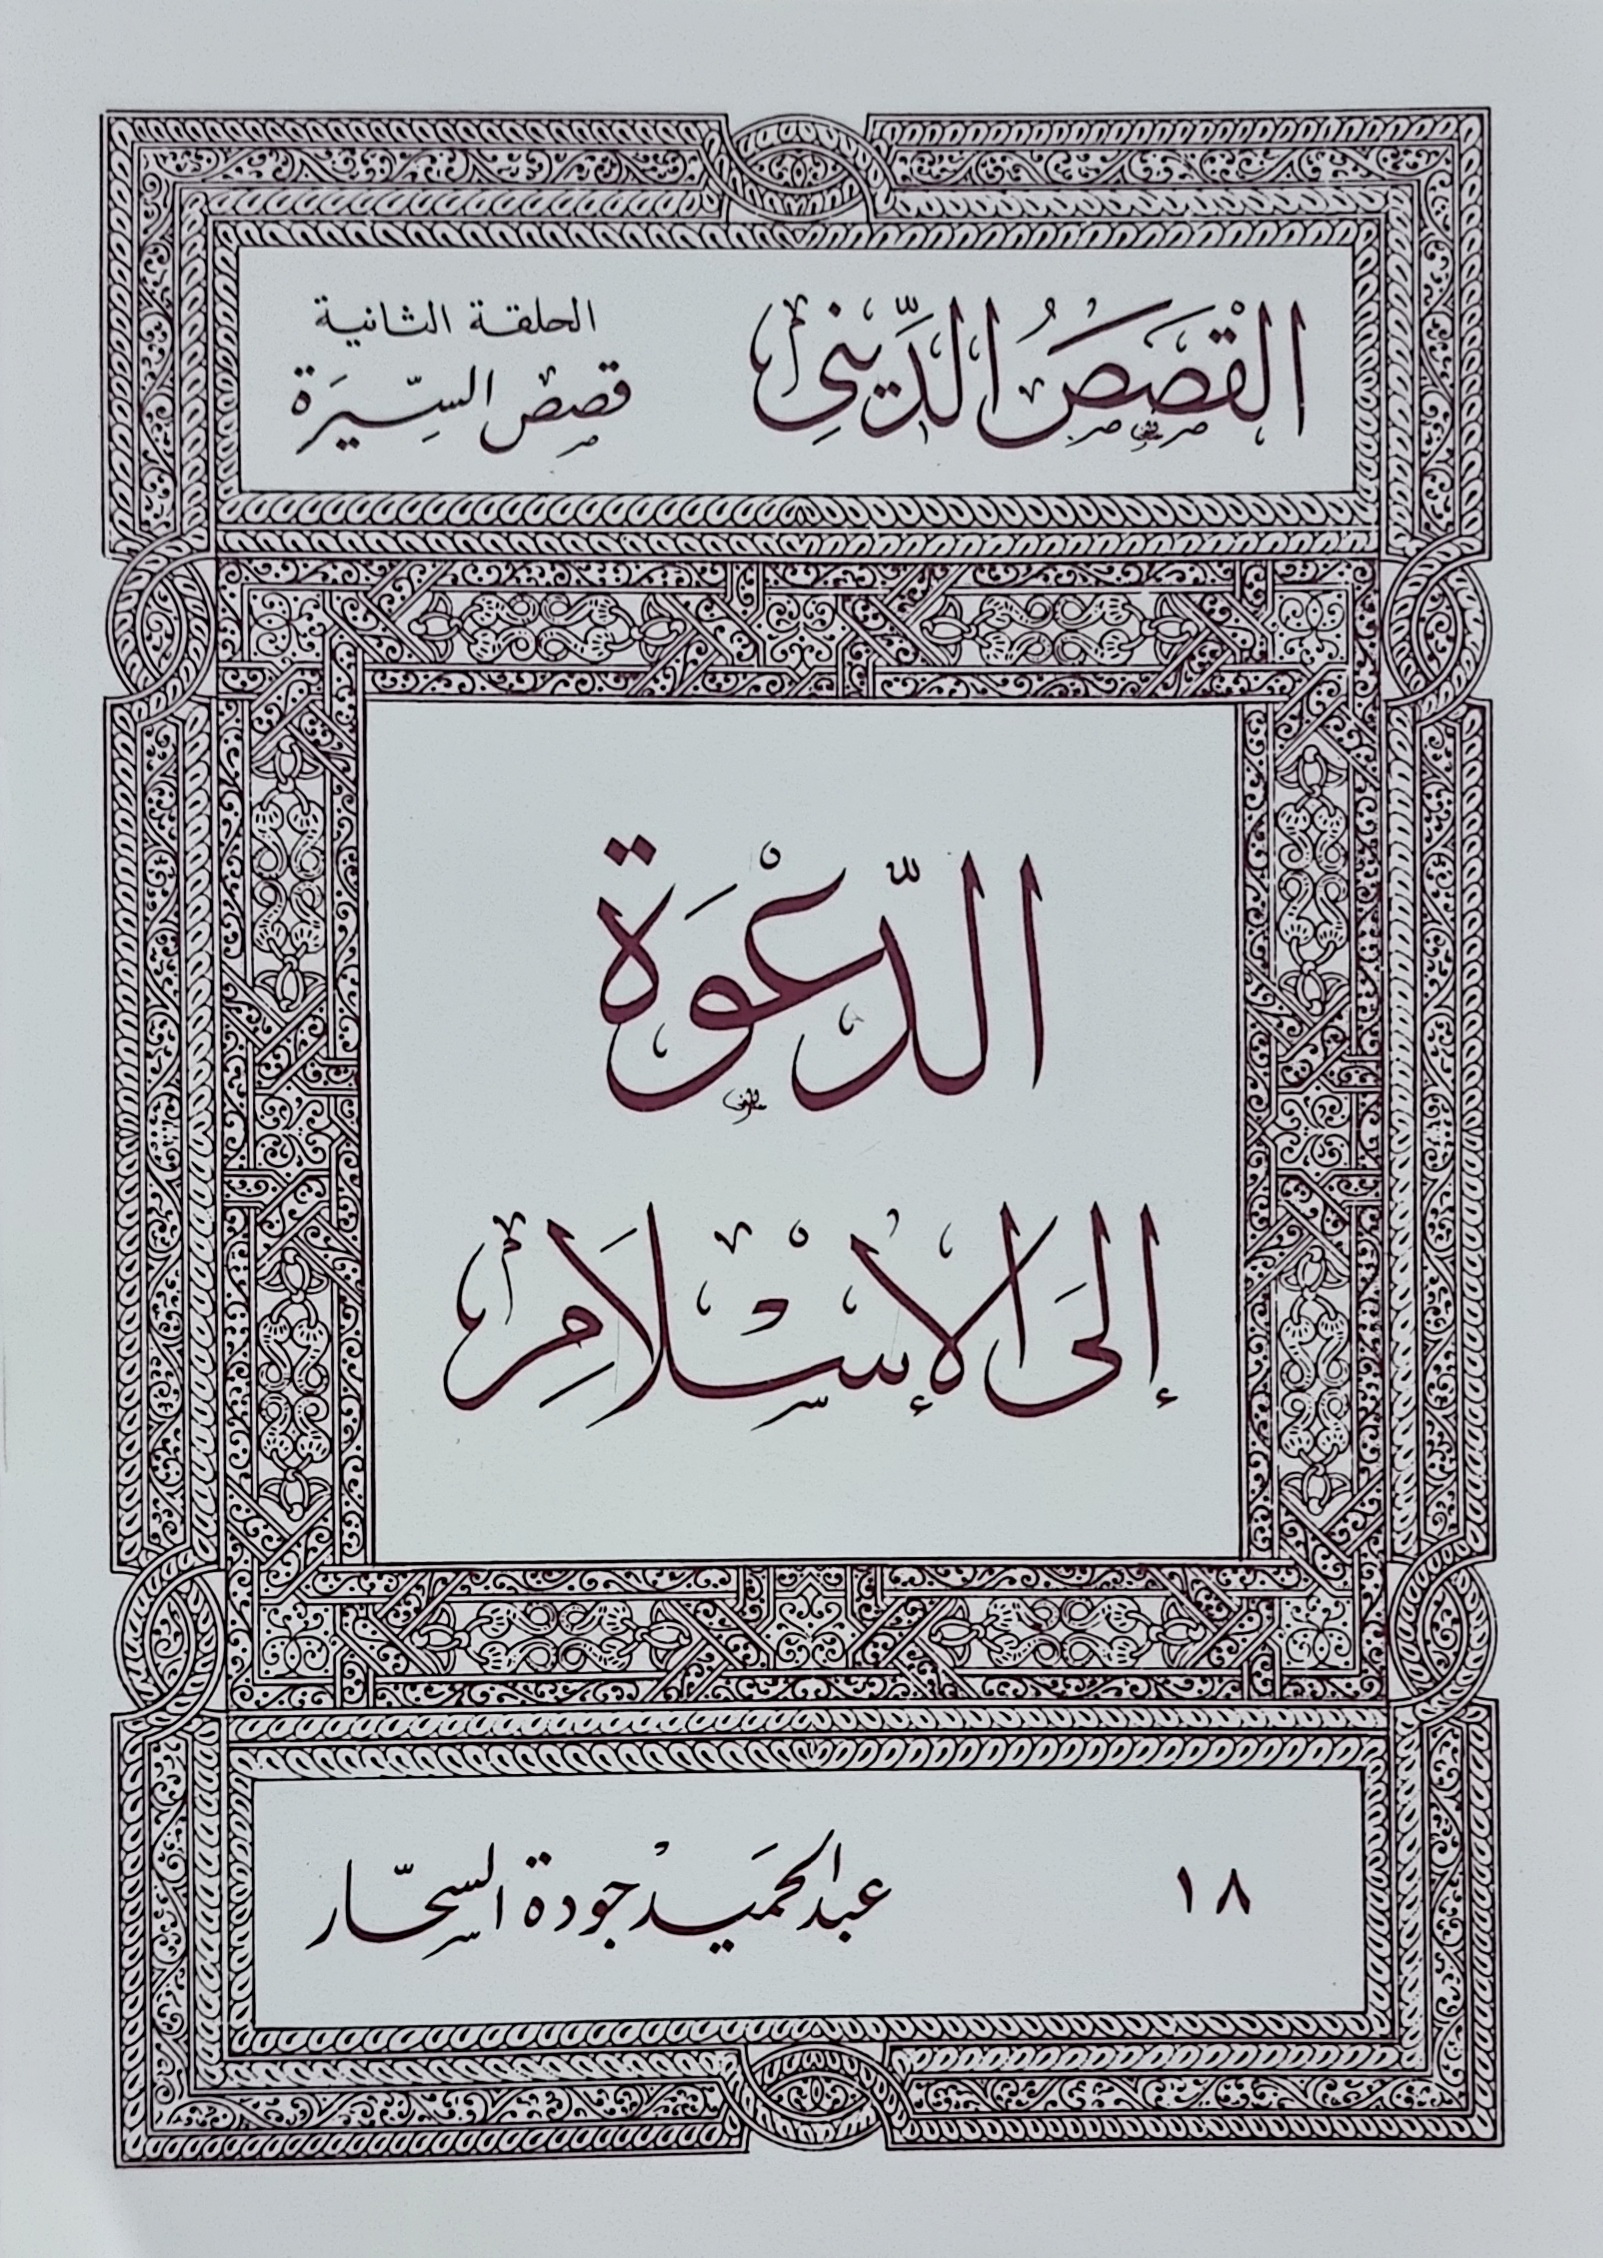 القَصَصُ الدِّيني
الحلقة الثانية
قصص السِّيرَة
الدَّعْوَة
إلَى الإسْلَامِ
١٨
عبد الحميد جودة السحّار